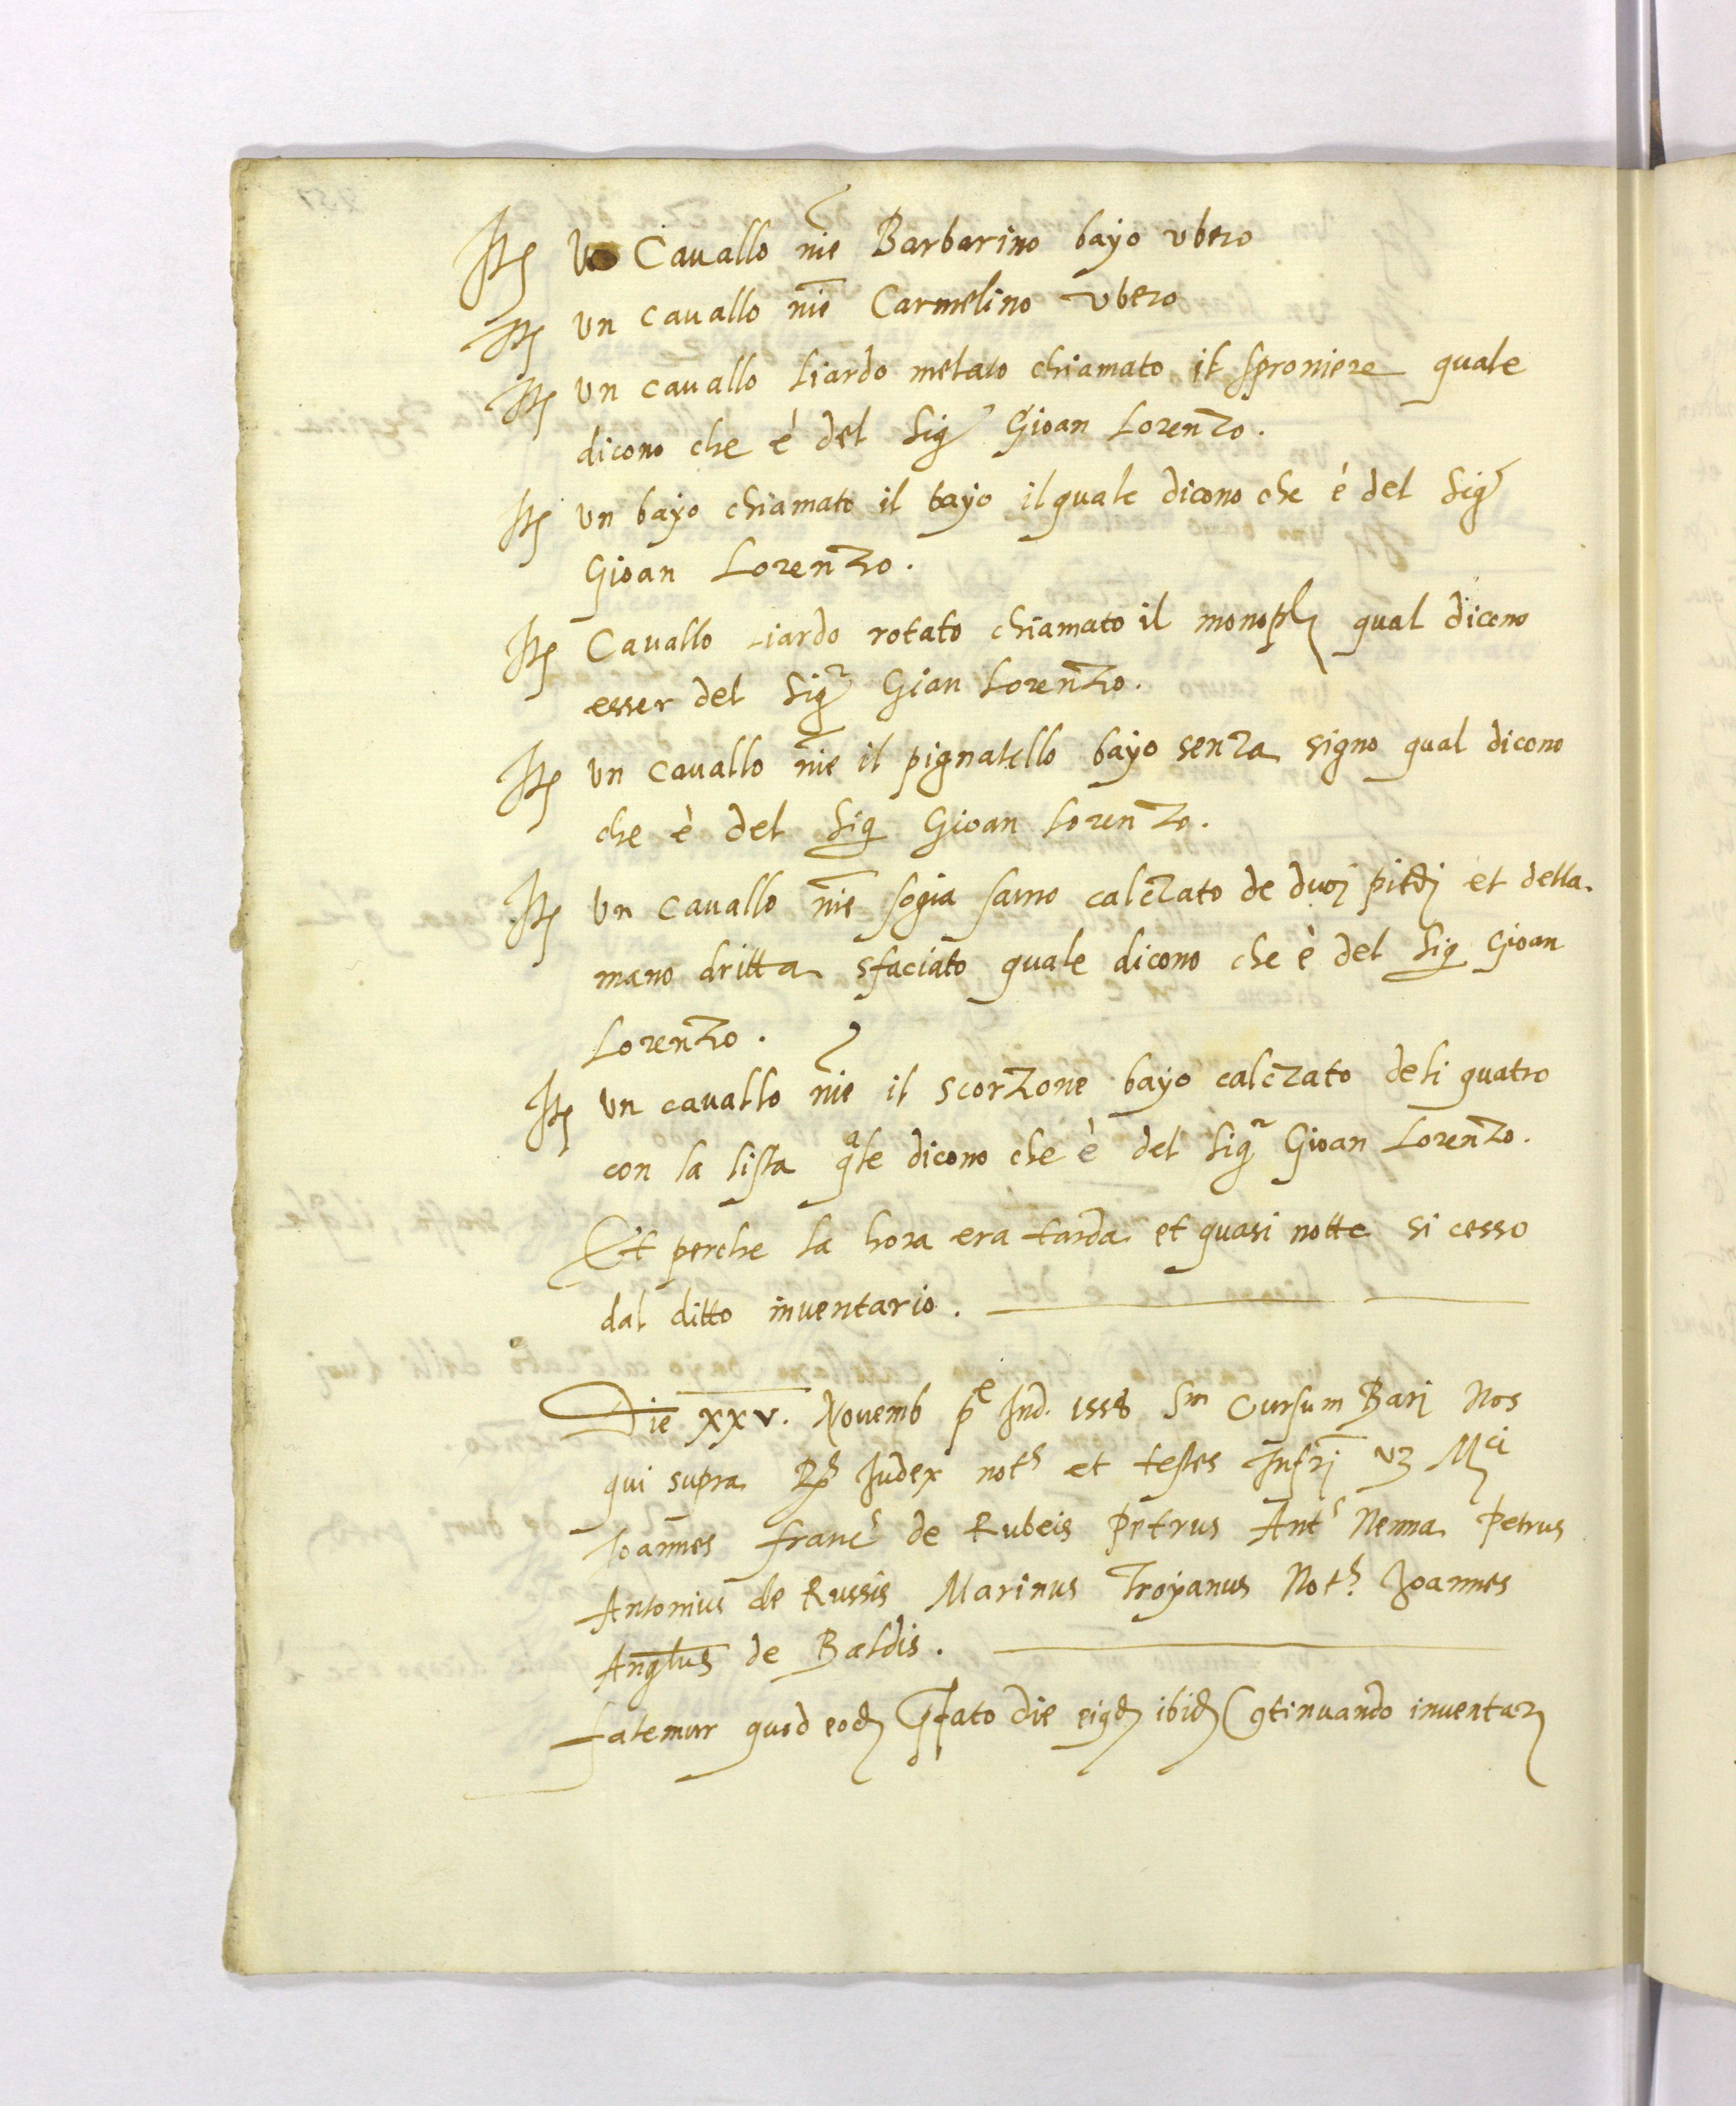 Itē Vº Cauallo nīe Barbarino bayo vbero
Itē vn cauallo nīe Carmelino vbero
Itē vn cauallo liardo melato chiamato il sproniere quale
dicono che è del Sigr Gioan Lorenzo.
Itē vn bayo chiamato il bayo il quale dicono che è del Sigr
Gioan Lorenzo.
Itē Cauallo liardo rotato chiamato il qual dicono
esser del Sigr Gian Lorenzo.
Itē vn cauallo nīe il pignatello bayo senza signo qual dicono
che è del Sig Gioan Lorenzo.
Itē vn cauallo nīe calczato de duoj piedj et della
mano dritta sfaciato quale dicono che è del Sig Gioan
Lorenzo.
Itē vn cauallo nīe il scorzone bayo calczato deli quatro
con la lista qale dicono che è del Sigr Gioan Lorenzo.
Et perche la hora era tarda et quasi notte si cesso
dal ditto inuentario.
Die xxv. Nouemb pe Ind. 1558 Sm Cursum Barj Nos
qui supra Rps Iudex nots et testes Infrj vz Mci
Ioannes francs de Rubeis Petrus Ants Nenna Petrus
Antonius de Russis Marinus Troyanus Nots Ioannes
Anglus de Baldis.
fatemur quod eodē pfato die eiqdē ibidē Cōtinuando inuentar